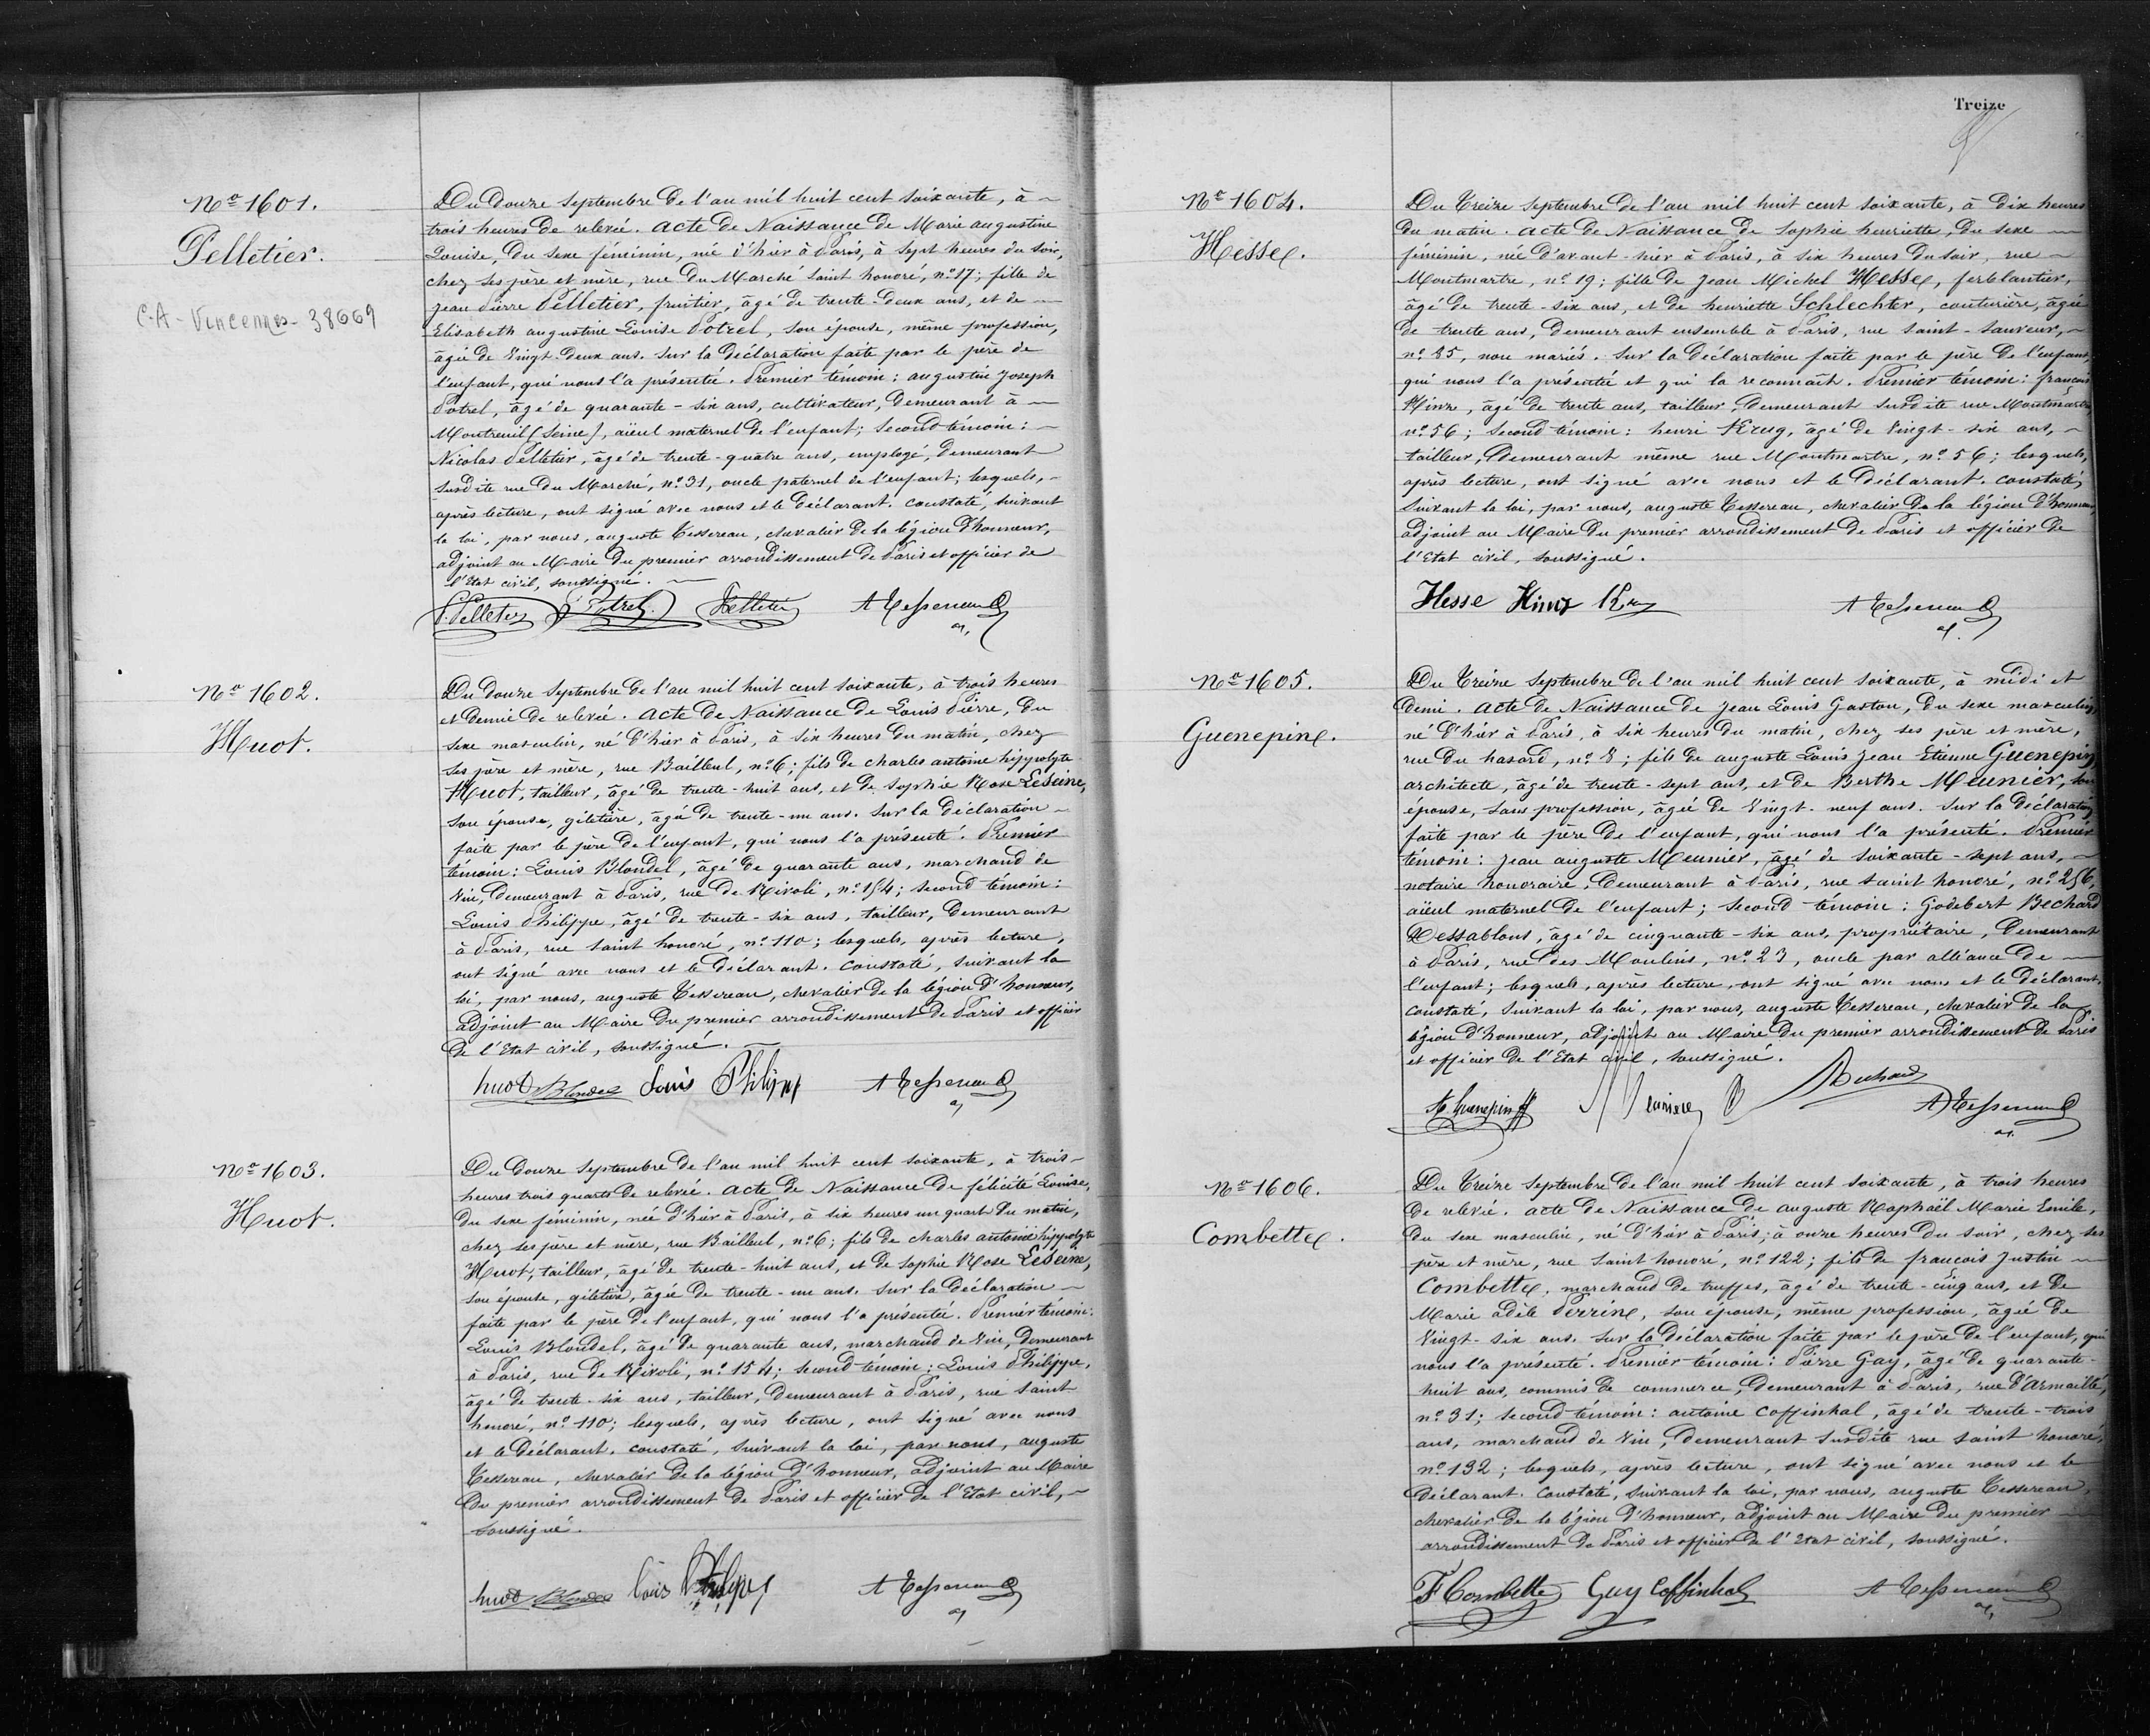 Nº 1601.
Pelletier.
C.A - Vincennes - 38669
Du douze Septembre de l'an mil huit cent soixante, à
trois heures de relevée. acte de Naissance de Marie augustine
Louise, du sexe féminin, née d'hier à Paris, à sept heures du soir,
chez ses père et mère, rue du Marché saint honoré, nº 17; fille de
Jean Pierre Pelletier, fruitier, âgé de trente-deux ans, et de
Elisabeth augustine Louise Potrel, son épouse, même profession,
âgée de vingt-deux ans. Sur la déclaration faite par le père de
l'enfant, qui nous l'a présentée. Premier témoin: augustin Joseph
Potrel, âgé de quarante-six ans, cultivateur, demeurant à
Montreuil (Seine), aïeul maternel de l'enfant; second témoin:
Nicolas Pelletier, âgé de trente-quatre ans, employé, demeurant
susdite rue du Marché, nº 31, oncle paternel de l'enfant; lesquels,
après lecture, ont signé avec nous et le déclarant. constaté, suivant
la loi, par nous, auguste Tessereau, chevalier de la légion d'honneur,
adjoint au Maire du premier arrondissement de Paris et officier de
l'Etat civil, soussigné.
P. Pelletier Potrel Pelletier A Tessereau
Nº 1602.
Huot.
Du douze Septembre de l'an mil huit cent soixante, à trois heures
et demie de relevée. acte de Naissance de Louis Pierre, du
sexe masculin, né d'hier à Paris, à six heures du matin, chez
ses père et mère, rue Bailleul, nº 6; fils de charles antoine hippolyte
Huot, tailleur, âgé de trente-huit ans, et de Sophie Rose Leseine,
son épouse, giletière, âgée de trente-un ans. Sur la déclaration
faite par le père de l'enfant, qui nous l'a présenté. Premier
témoin: Louis Blondel, âgé de quarante ans, marchand de
vin, demeurant à Paris, rue de Rivoli, nº 154; second témoin:
Louis Philippe, âgé de trente-six ans, tailleur, demeurant
à Paris, rue saint honoré, nº 110; lesquels, après lecture,
ont signé avec nous et le déclarant. constaté, suivant la
loi, par nous, auguste Tessereau, chevalier de la légion d'honneur,
adjoint au Maire du premier arrondissement de Paris et officier
de l'Etat civil, soussigné.
huot Blondel Louis Philippe A Tessereau
Nº 1603.
Huot.
Du douze Septembre de l'an mil huit cent soixante, à trois
heures trois quarts de relevée. acte de Naissance de félicité Louise,
du sexe féminin, née d'hier à Paris, à six heures un quart du matin,
chez ses père et mère, rue Bailleul, nº 6; fils de charles antoine hippolyte
Huot, tailleur, âgé de trente-huit ans, et de Sophie Rose Leseine,
son épouse, giletière, âgée de trente-un ans. Sur la déclaration
faite par le père de l'enfant, qui nous l'a présentée. Premier témoin:
Louis Blondel, âgé de quarante ans, marchand de vin, demeurant
à Paris, rue de Rivoli, nº 154; second témoin: Louis Philippe,
âgé de trente-six ans, tailleur, demeurant à Paris, rue saint
honoré, nº 110; lesquels, après lecture, ont signé avec nous
et le déclarant. constaté, suivant la loi, par nous, auguste
Tessereau, chevalier de la légion d'honneur, adjoint au Maire
du premier arrondissement de Paris et officier de l'Etat civil,
soussigné.
huot Blondel Louis Philippe A Tessereau
Treize
Nº 1604.
Hesse.
Du treize Septembre de l'an mil huit cent soixante, à dix heures
du matin. acte de Naissance de Sophie henriette, du sexe
féminin, née d'avant-hier à Paris, à six heures du soir, rue
Montmartre, nº 19; fille de Jean Michel Hesse, ferblantier,
âgé de trente-six ans, et de henriette Schlechter, couturière, âgée
de trente ans, demeurant ensemble à Paris, rue saint-Sauveur,
nº 85, non mariés. Sur la déclaration faite par le père de l'enfant,
qui nous l'a présentée et qui la reconnaît. Premier témoin: françois
Hinze, âgé de trente ans, tailleur, demeurant susdite rue Montmartre,
nº 56; second témoin: henri Krug, âgé de vingt-six ans,
tailleur, demeurant même rue Montmartre, nº 56; lesquels,
après lecture, ont signé avec nous et le déclarant. constaté,
suivant la loi, par nous, auguste Tessereau, chevalier de la légion d'honneur,
adjoint au Maire du premier arrondissement de Paris et officier de
l'Etat civil, soussigné.
Hesse Hinz Krug A Tessereau
Nº 1605.
Guenepin.
Du treize Septembre de l'an mil huit cent soixante, à midi et
demi. acte de Naissance de Jean Louis Gaston, du sexe masculin,
né d'hier à Paris, à six heures du matin, chez ses père et mère,
rue du hasard, nº 8; fils de auguste Louis Jean Etienne Guenepin,
architecte, âgé de trente-sept ans, et de Berthe Meunier, son
épouse, sans profession, âgée de vingt-neuf ans. Sur la déclaration
faite par le père de l'enfant, qui nous l'a présenté. Premier
témoin: Jean auguste Meunier, âgé de soixante-sept ans,
notaire honoraire, demeurant à Paris, rue saint honoré, nº 256,
aïeul maternel de l'enfant; second témoin: Godebert Bechard
Dessablons, âgé de cinquante-six ans, propriétaire, demeurant
à Paris, rue des Moulins, nº 23, oncle par alliance de
l'enfant; lesquels, après lecture, ont signé avec nous et le déclarant,
constaté, suivant la loi, par nous, auguste Tessereau, chevalier de la
légion d'honneur, adjoint au Maire du premier arrondissement de Paris
et officier de l'Etat civil, soussigné.
A. Guenepin Meunier Bechard A Tessereau
Nº 1606.
Combette.
Du treize Septembre de l'an mil huit cent soixante, à trois heures
de relevée. acte de Naissance de auguste Raphaël Marie Emile,
du sexe masculin, né d'hier à Paris, à onze heures du soir, chez ses
père et mère, rue saint honoré, nº 122; fils de françois Justin
Combette, marchand de truffes, âgé de trente-cinq ans, et de
Marie adèle Perrine, son épouse, même profession, âgée de
vingt-six ans. Sur la déclaration faite par le père de l'enfant, qui
nous l'a présenté. Premier témoin: Pierre Gay, âgé de quarante-
huit ans, commis de commerce, demeurant à Paris, rue d'Armaillé,
nº 31; second témoin: antoine Coffinhal, âgé de trente-trois
ans, marchand de vin, demeurant susdite rue saint honoré,
nº 132; lesquels, après lecture, ont signé avec nous et le
déclarant. Constaté, suivant la loi, par nous, auguste Tessereau,
chevalier de la légion d'honneur, adjoint au Maire du premier
arrondissement de Paris et officier de l'Etat civil, soussigné.
F Combette Guy Coffinhal A Tessereau